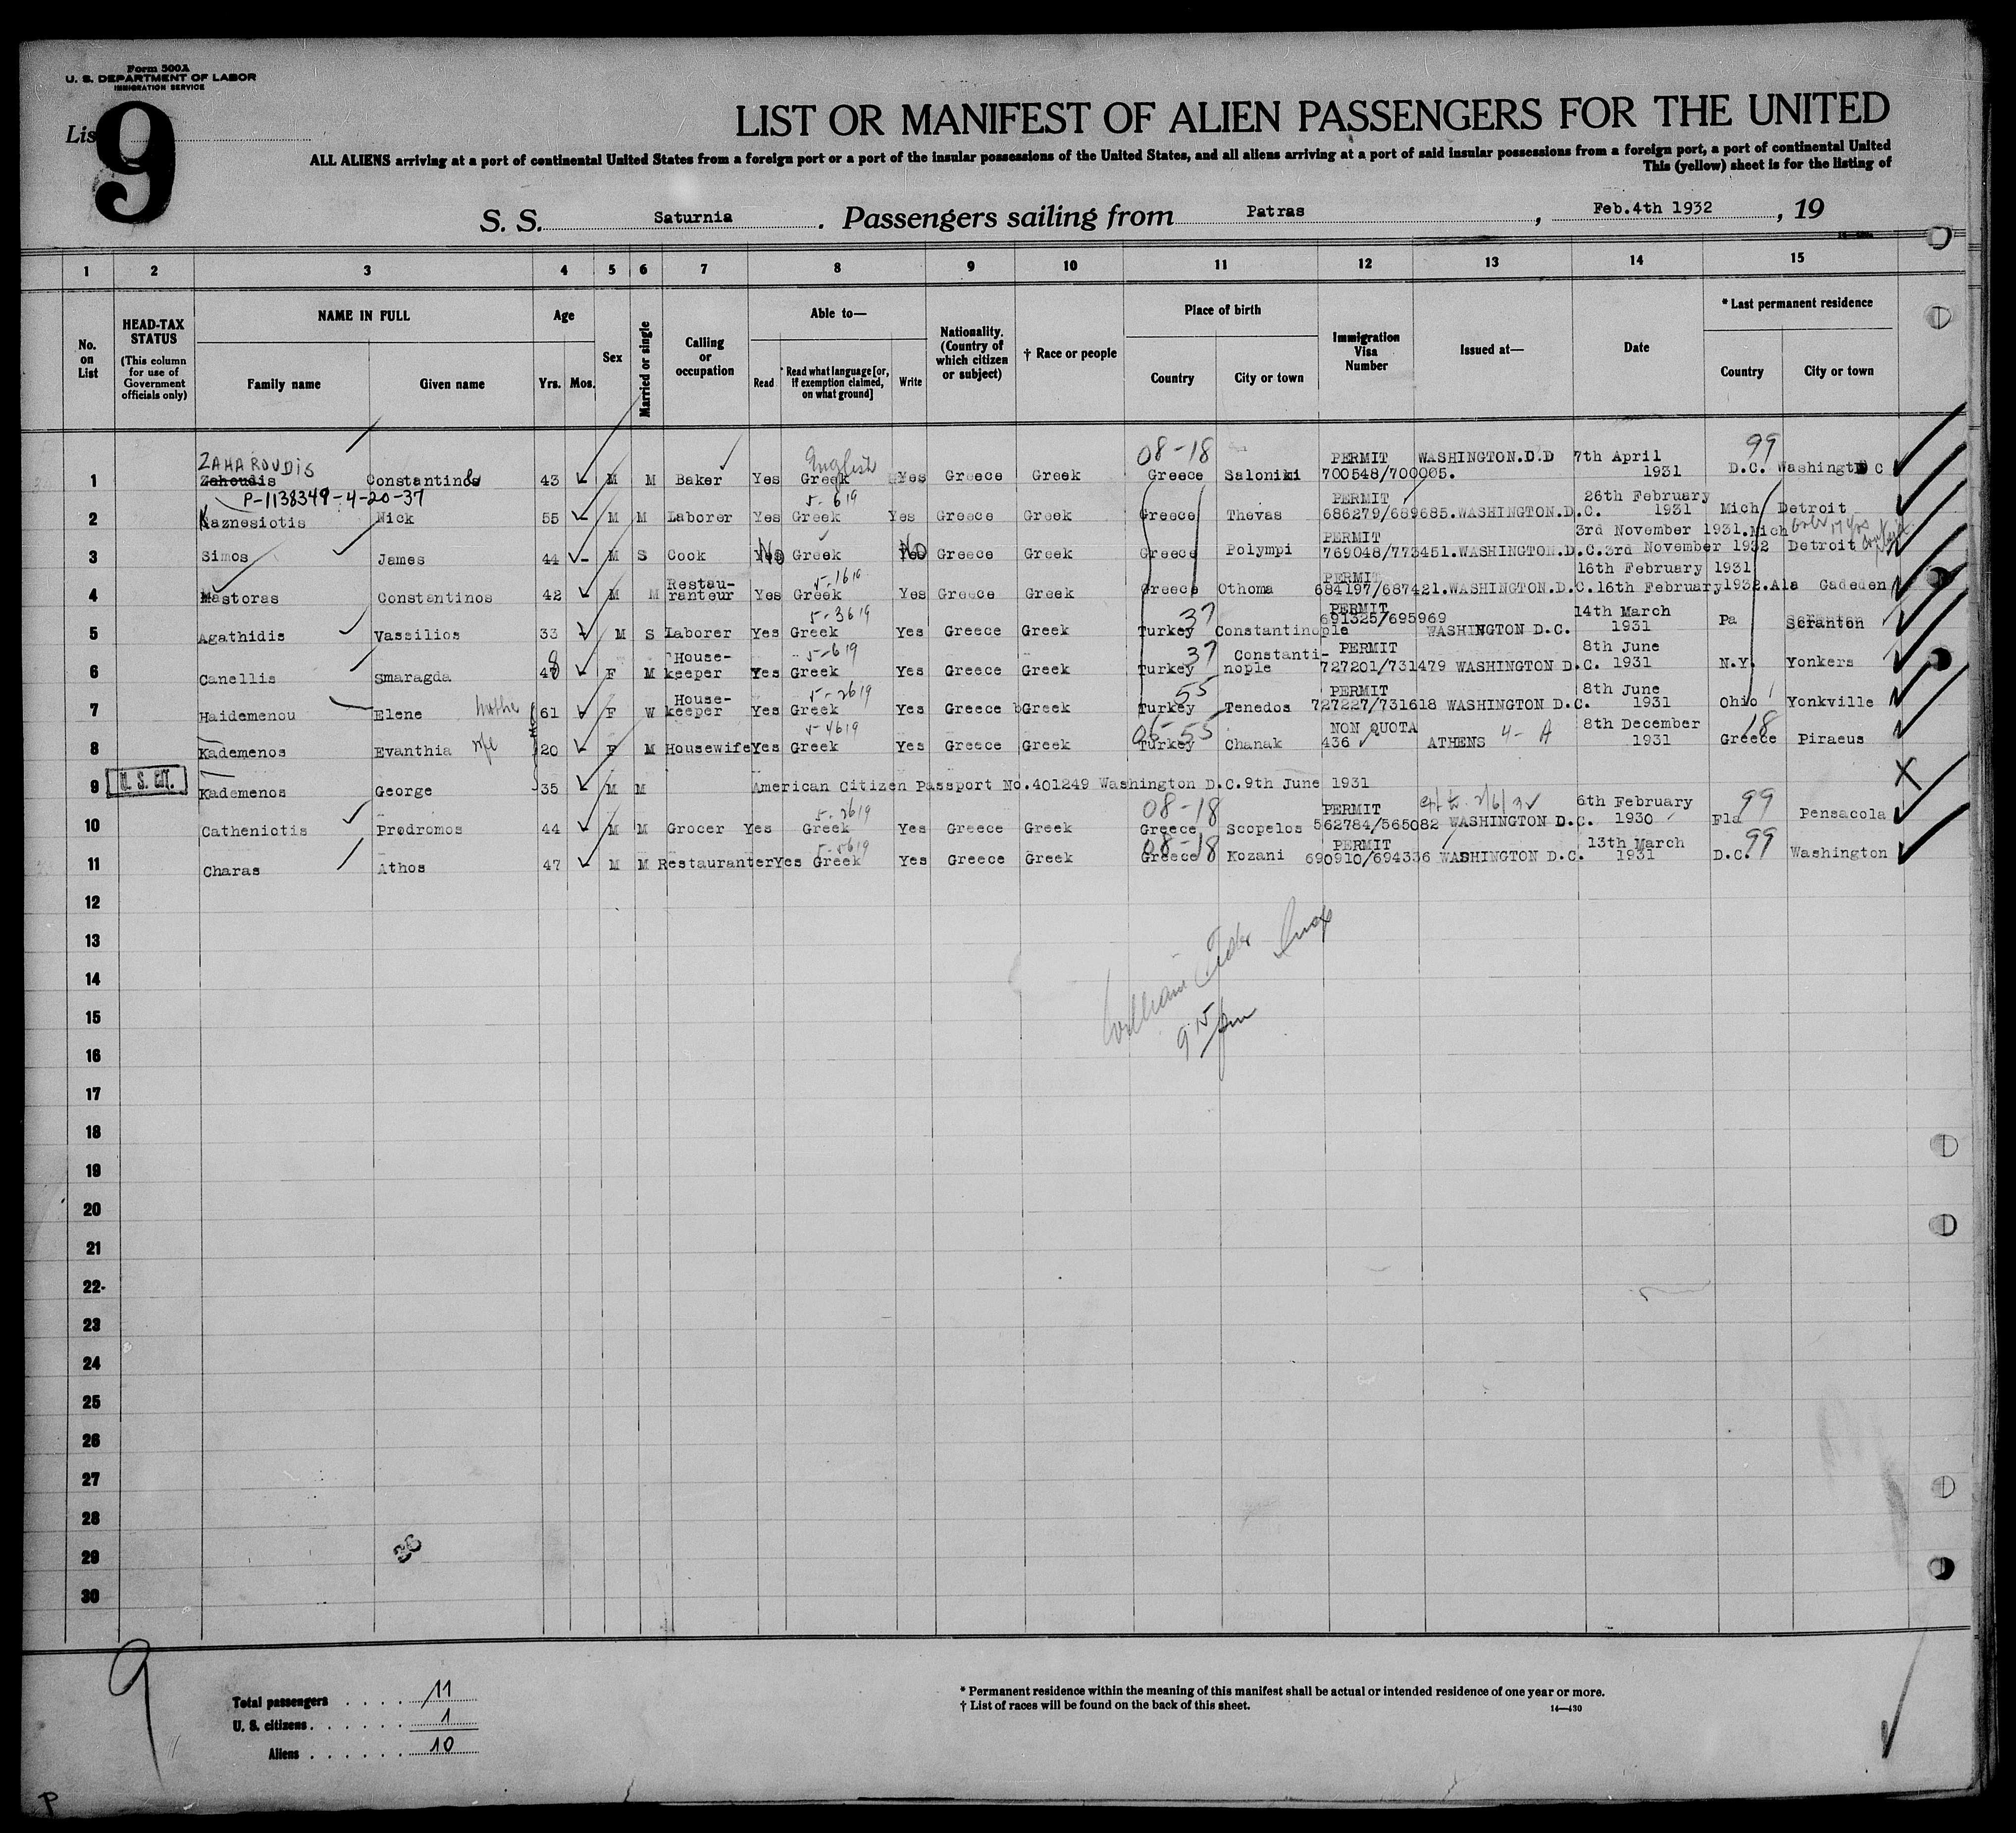 Form 500A
U. S. DEPARTMENT OF LABOR
IMMIGRATION SERVICE
9
LIST OR MANIFEST OF ALIEN PASSENGERS FOR THE UNITED
ALL ALIENS arriving at a port of continental United States from a foreign port or a port of the insular possessions of the United States, and all aliens arriving at a port of said insular possessions from a foreign port, a port of continental United
This (yellow) sheet is for the listing of
S. S. Saturnia . Passengers sailing from Patras , Feb.4th 1932 , 19
1 2 3 4 5 6 7 8 9 10 11 12 13 14 15
No. on List
HEAD-TAX STATUS (This column for use of Government officials only)
NAME IN FULL Family name Given name
Age Yrs. Mos.
Sex
Married or single
Calling or occupation
Able to— Read Read what language [or, if exemption claimed, on what ground] Write
Nationality. (Country of which citizen or subject)
† Race or people
Place of birth Country City or town
Immigration Visa Number
Issued at—
Date
* Last permanent residence Country City or town
ZAHAROUDIS English 08-18 PERMIT WASHINGTON.D.D 7th April 99
1 Zahoudis Constantinos 43 M M Baker Yes Greek Yes Greece Greek Greece Saloniki 700548/700005. 1931 D.C. Washington D C
P-1138349-4-20-37 5-619 PERMIT 26th February
2 Kaznesiotis Nick 55 M M Laborer Yes Greek Yes Greece Greek Greece Thevas 686279/689685.WASHINGTON.D.C. 1931 Mich Detroit
PERMIT 3rd November 1931.Mich
3 Simos James 44 M S Cook Yes No Greek Yes No Greece Greek Greece Polympi 769048/773451.WASHINGTON.D.C.3rd November 1932 Detroit
Restau- 5-1619 PERMIT 16th February 1931
4 Mastoras Constantinos 42 M M ranteur Yes Greek Yes Greece Greek Greece Othoma 684197/687421.WASHINGTON.D.C.16th February1932.Ala Gadeden
5-3619 37 PERMIT 691325/695969 14th March
5 Agathidis Vassilios 33 M S Laborer Yes Greek Yes Greece Greek Turkey Constantinople WASHINGTON D.C. 1931 Pa Scranton
8 House- 5-619 37 Constanti- PERMIT 8th June
6 Canellis Smaragda 48 F M keeper Yes Greek Yes Greece Greek Turkey nople 727201/731479 WASHINGTON D.C. 1931 N.Y. Yonkers
House- 5-2619 55 PERMIT 8th June
7 Haidemenou Elene 61 F W keeper Yes Greek Yes Greece Greek Turkey Tenedos 727227/731618 WASHINGTON D.C. 1931 Ohio Yonkville
5-4619 05-55 NON QUOTA 8th December 18
8 Kademenos Evanthia wife 20 F M Housewife Yes Greek Yes Greece Greek Turkey Chanak 436 ATHENS 4- A 1931 Greece Piraeus
9 U. S. CIT. Kademenos George 35 M M American Citizen Passport No.401249 Washington D.C.9th June 1931 X
5-2619 08-18 PERMIT 6th February 99
10 Catheniotis Prodromos 44 M M Grocer Yes Greek Yes Greece Greek Greece Scopelos 562784/565082 WASHINGTON D.C. 1930 Fla Pensacola
5-5619 08-18 PERMIT 13th March 99
11 Charas Athos 47 M M Restauranter Yes Greek Yes Greece Greek Greece Kozani 690910/694336 WASHINGTON D.C. 1931 D.C. Washington
12
13
14
15
9 15 pm
16
17
18
19
20
21
22
23
24
25
26
27
28
29
30
36
9
Total passengers . . . . 11
U. S. citizens . . . . . . 1
Aliens . . . . . . 10
* Permanent residence within the meaning of this manifest shall be actual or intended residence of one year or more.
† List of races will be found on the back of this sheet.
14—430
P